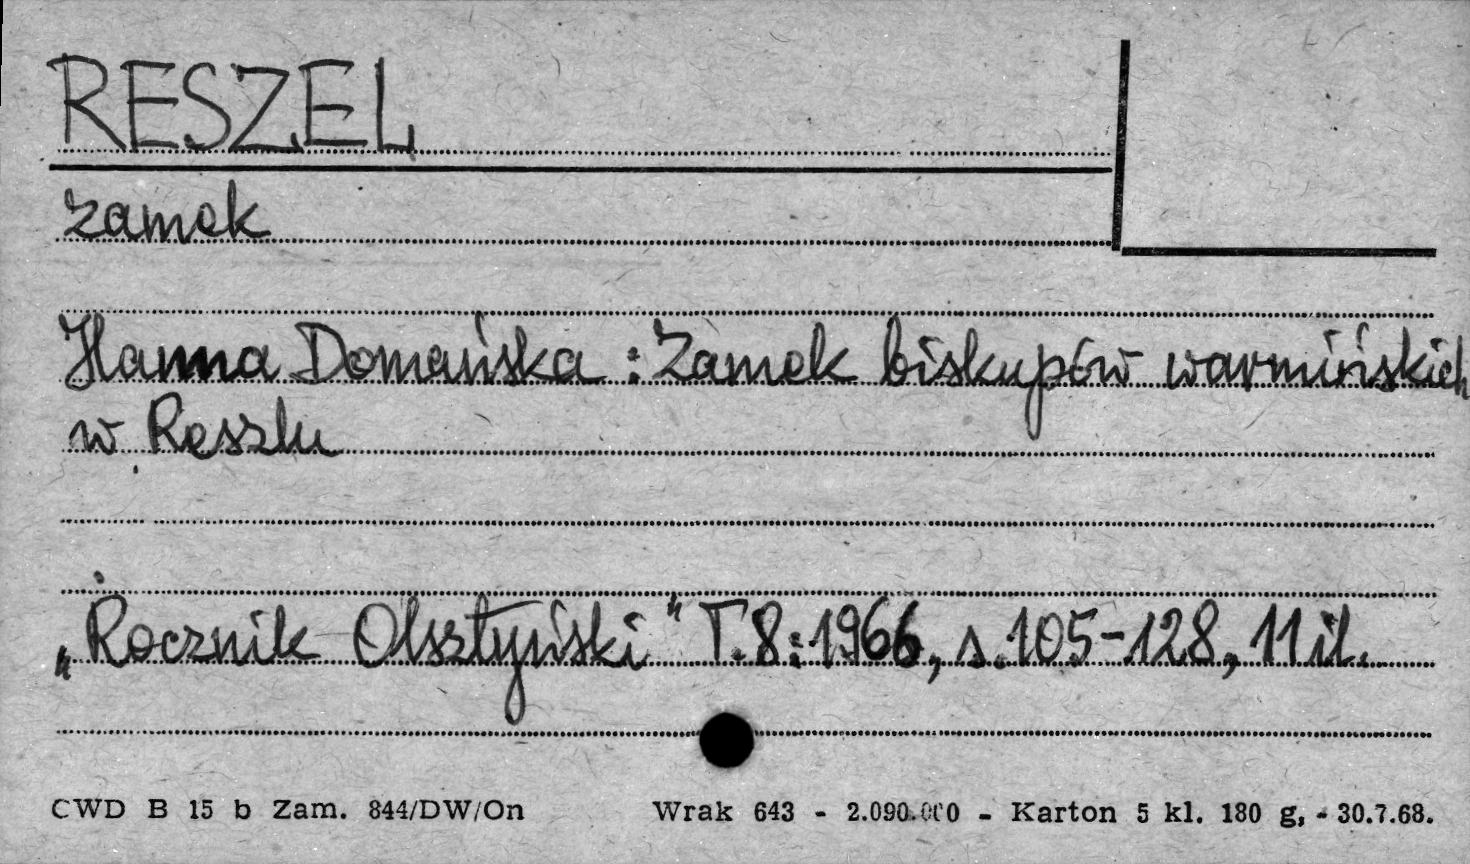 RESZEL
zamek
Hanna Domańska : Zamek biskupów warmińskich
w Reszlu
„Rocznik Olsztyński" T.8:1966, s.105-128, 11 il.
CWD B 15 b Zam. 844/DW/On Wrak 643 - 2.090.000 - Karton 5 kl. 180 g, - 30.7.68.